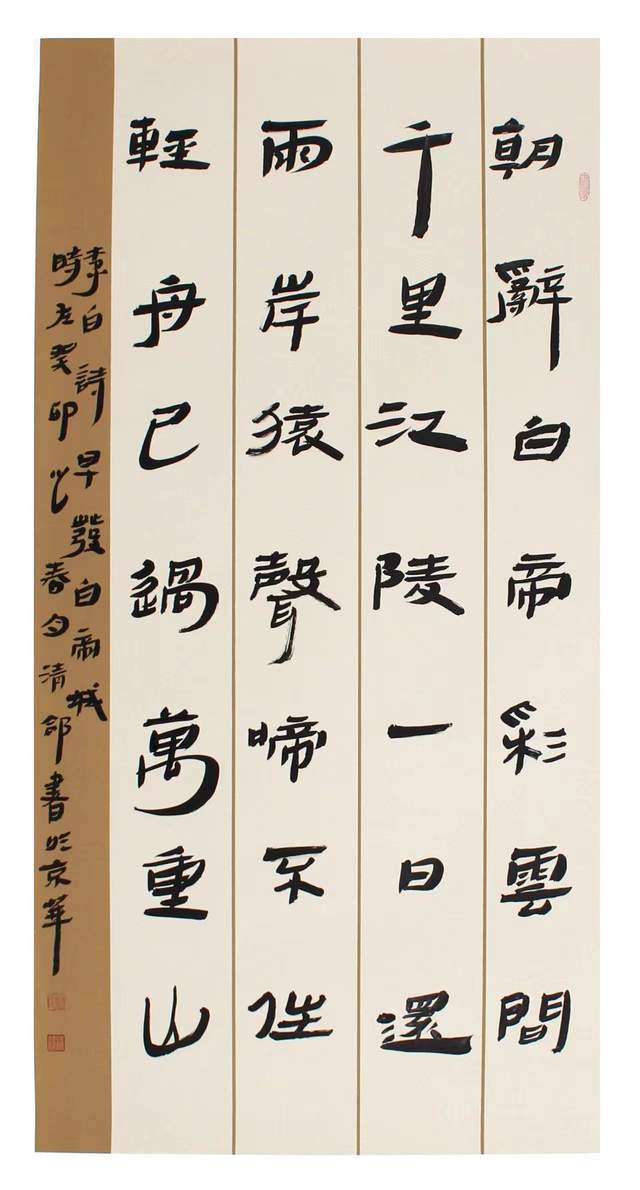 朝辭白帝彩雲間
千里江陵一日還
兩岸猿聲啼不住
輕舟已過萬重山
李白詩早發白帝城
時在癸卯春夕清郃書於京華